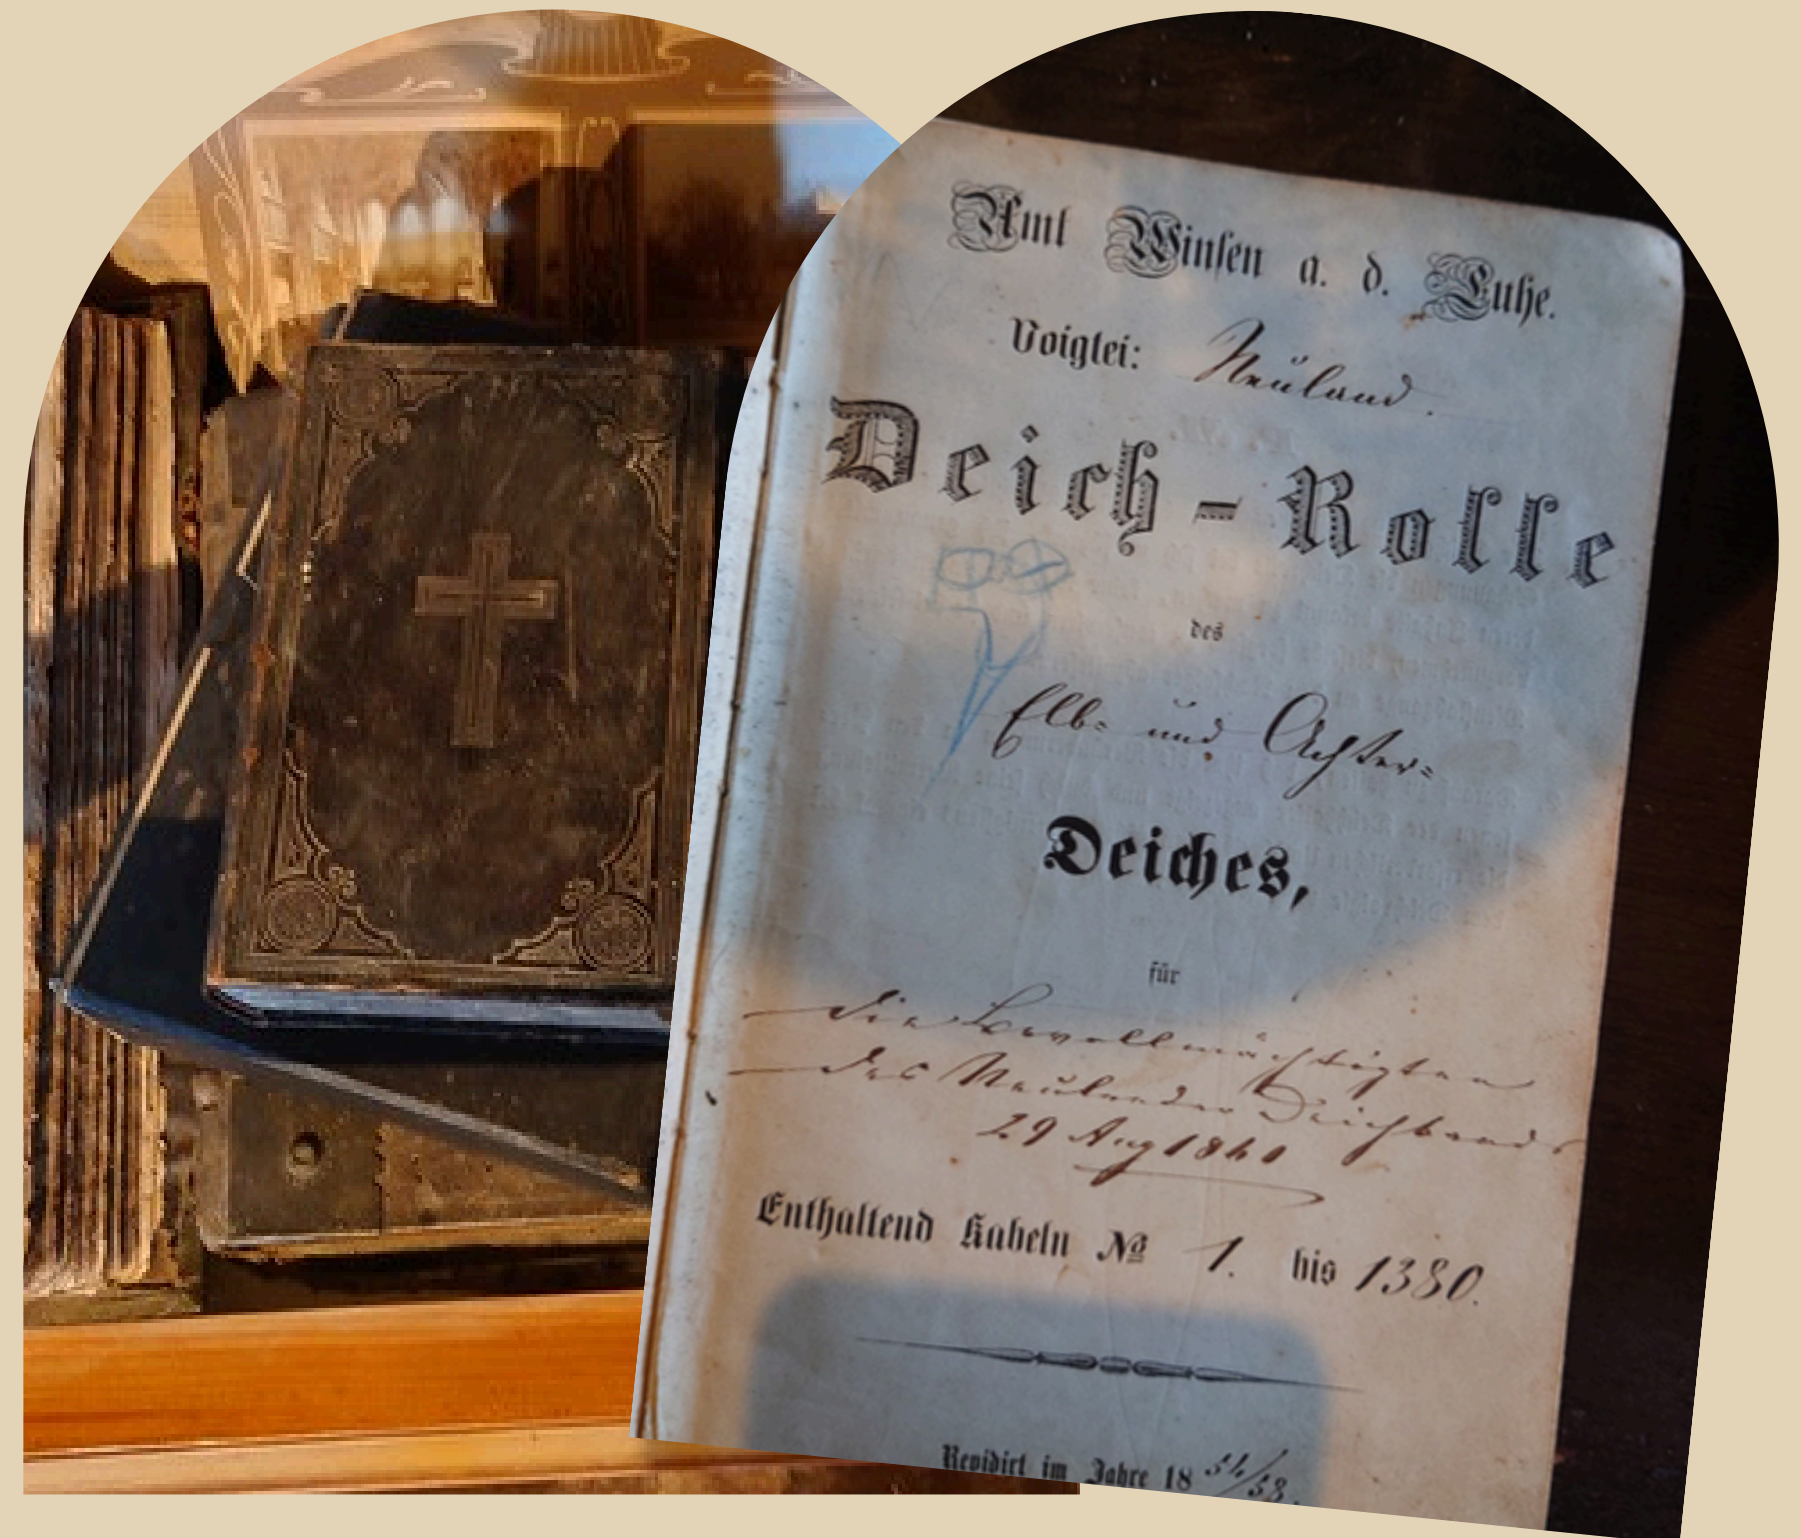 Amt Winsen a. d. Luhe.
Voigtei: Neuland.
Deich-Rolle
des
Elb- und Achter-
Deiches,
für
die Bevollmächtigten
des Neulander Deichbands
29 Aug 1860
Enthaltend Kabeln № 1. bis 1380.
Revidirt im Jahre 18